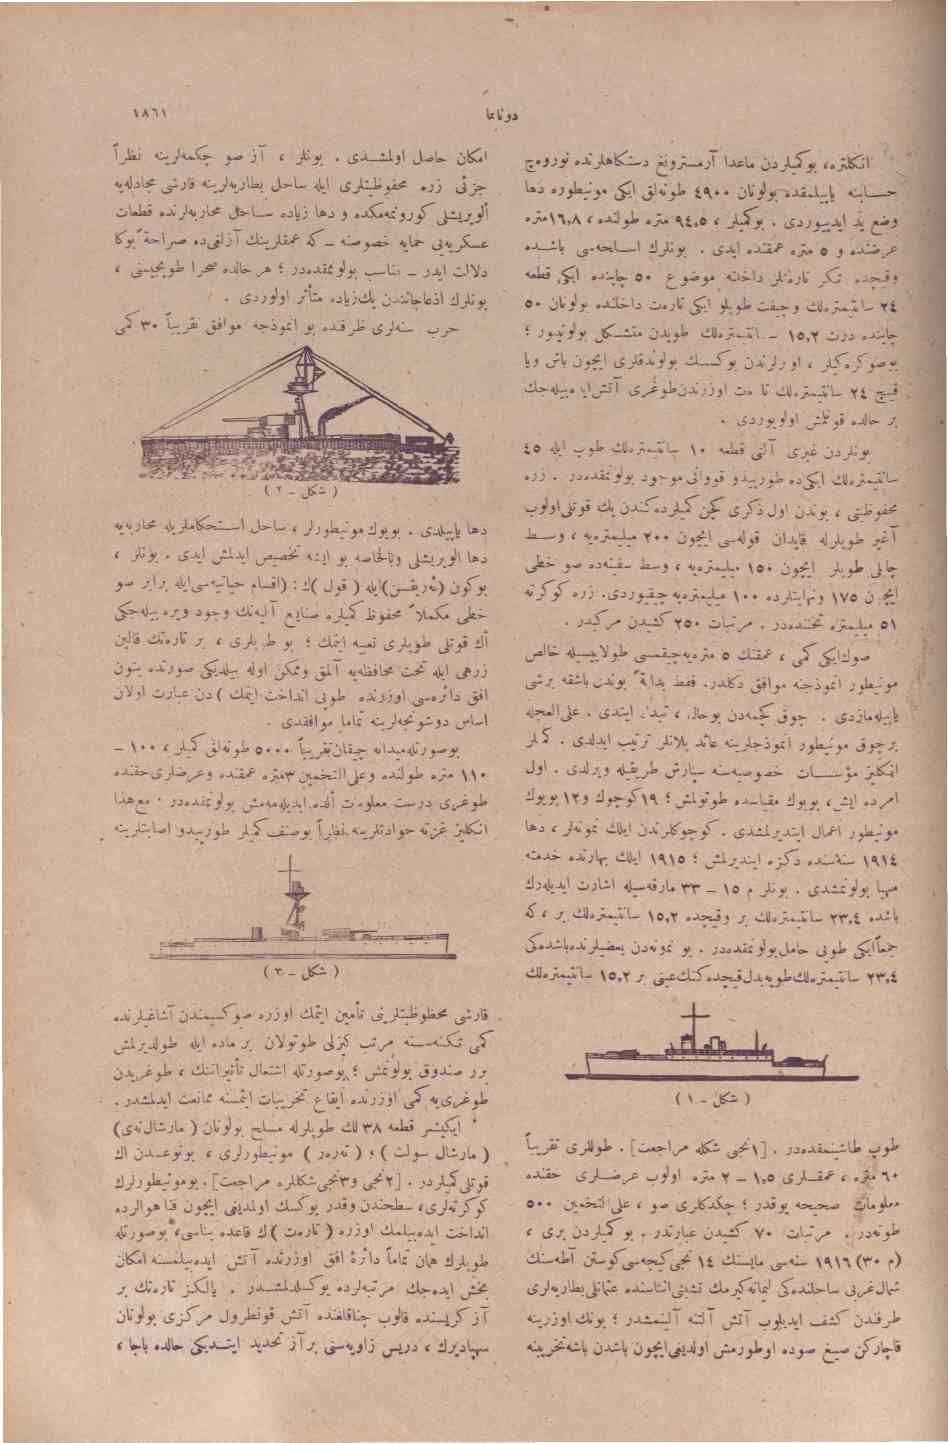 دوناما
٤٨٦١
انكلتره، بوكميلردن ماعدا آرمسترونغ دستكاهلرنده نوروەج
حسابنه ياپيلمقده بولونان ٤٩٠٠ طونه‌لق ايكى مونيطوره دها
وضع يد ايدييوردى . بوكميلر ، ٩٤,٥ متره طولنده ، ١٦,٨متره
عرضنده و ٥ متره عمقنده ايدى . بونلرك اسلحه‌سى باشده
وقيچده تكر تاره‌تلر داخلنه موضوع ٥٠ چاپنده ايكى قطعه
٢٤ سانتيمتره‌لك وچيفت طوپلو ايكى تاره‌ت داخلنده بولونان ٥٠
چاپنده درت ١٥,٢ سانتيمتره‌لك طوپدن متشكل بولونيور ؛
بوصوكره‌كيلر ، اوبرلرندن يوكسك بولوندقلرى ايچون باش ويا
قيچ ٢٤ سانتيمتره‌لك تاره‌ت اوزرندن‌طوغرى آتش‌ايده‌بيله‌جك
بر حالده قونلمش اولويوردى .
بونلردن غيرى آلتى قطعه ١٠ سانتيمتره‌لك طوپ ايله ٤٥
سانتيمتره‌لك ايكى‌ده طورپيدو قووانى‌موجود بولونمقده‌در . زره
محفوظيتى ، بوندن اول ذكرى كچن كميلرده‌كندن پك قوتلى‌اولوب
آغير طوپلرله قاپدان قوله‌سى ايچون ٢٠٠ ميليمتره‌يه ، وسط
چاپلى طوپلر ايچون ١٥٠ ميليمتره‌يه ، وسط سفينه‌ده صو خطى
ايچون ١٧٥ ونهايتلرده ١٠٠ ميليمتره‌يه چيقيوردى. زره كوكرته
٥١ ميليمتره ثخننده‌در . مرتبات ٢٥٠ كشيدن مركبدر .
صوك‌ايكى كمى ، عمقنك ٥ متره‌يه‌چيقمسى طولاييسيله خالص
مونيطور انموذجنه موافق دكلدر. فقط بدايةً بوندن باشقه برشى
ياپيله‌مازدى . چوق كچمه‌دن بوحال، تبدل ايتدى . على‌العجله
برچوق مونيطور انموذجلرينه عائد پلانلر ترتيب ايدلدى . كميلر
انكليز مؤسسات خصوصيه‌سنه سپارش طريقيله ويرلدى . اول
امرده ايش، بويوك مقياسده طوتولمش ؛ ١٩كوچوك و١٢ بويوك
مونيطور اعمال ايتديرلمشدى . كوچوكلرندن ايلك نمونه‌لر ، دها
١٩١٤ سنه‌سنده دكزه اينديرلمش ؛ ١٩١٥ ايلك بهارنده خدمته
مهيا بولونمشدى . بونلر م ١٥ – ٣٣ مارقه‌سيله اشارت ايديله‌رك
باشده ٢٣,٤ سانتيمتره‌لك بر وقيچده ١٥,٢ سانتيمتره‌لك بر ، كه
جمعاًايكى طوپى حامل‌بولونمقده‌در . بو نمونه‌دن بعضيلرنده‌باشده‌كى
٢٣,٤ سانتيمتره‌لك‌طوپه‌بدل‌قيچده‌كنك‌عينى بر ١٥,٢ سانتيمتره‌لك
( شكل - ١ )
طوپ طاشينمقده‌در . [١نجى شكله مراجعت] . طوللرى تقريباً
٦٠ متره ، عمقلرى ١,٥ – ٢ متره اولوب عرضلرى حقنده
معلومات صحيحه يوقدر ؛ چكدكلرى صو ، على‌التخمين ٥٠٠
طونه‌در . مرتبات ٧٠ كشيدن عبارتدر . بو كميلردن برى ،
(م ٣٠) ١٩١٦ سنه‌سى مايسنك ١٤ نجى‌كيجه‌سى‌كوستن آطه‌سنك
شمال‌غربى ساحلنده‌كى ليمانه‌كيرمك تشبثى‌اثناسنده عثمانلى‌بطاريه‌لرى
طرفندن كشف ايديلوب آتش آلتنه آلينمشدر ؛ بونك اوزرينه
قاچاركن صيغ صوده اوطورمش اولديغى‌ايچون باشدن باشه‌تخريبنه
امكان حاصل اولمشدى . بونلر ، آز صو چكمه‌لرينه نظراً
جزئى زره محفوظيتلرى ايله ساحل بطاريه‌لرينه قارشى مجادله‌يه
ألويريشلى كورونمه‌مكده و دها زياده ساحل محاربه‌لرنده قطعات
عسكريه‌يى حمايه خصوصنه – كه عمقلرينك آزلغى‌ده صراحةً بوكا
دلالت ايدر – مناسب بولونمقده‌در ؛ هر حالده صحرا طوپجيسنى ،
بونلرك اذعاجاتندن پك‌زياده متأثر اولوردى .
حرب سنه‌لرى ظرفنده بو انموذجه موافق تقريباً ٣٠ كمى
( شكل - ٢ )
دها ياپيلدى . بويوك مونيطورلر ، ساحل استحكاملريله محاربه‌يه
دها الويريشلى وبالخاصه بو ايشه تخصيص ايدلمش ايدى . بونلر ،
بوكون (ئه‌ريقسن)ايله ( قول )ك: (اقسام حياتيه‌سى‌ايله برابر صو
خطى مكملاً محفوظ كميلره صنايع آليه‌نك وجود ويره بيله‌جكى
أك قوتلى طوپلرى تعبيه ايتمك ؛ بو طوپلرى ، بر تاره‌تك قالين
زرهى ايله تحت محافظه‌يه آلمق وممكن اوله بيلديكى صورتده بتون
افق دائره‌سى اوزرنده طوپى انداخت ايتمك )دن عبارت اولان
اساس دوشونجه‌لرينه تماماً موافقدى .
بوصورتله‌ميدانه چيقان‌تقريباً ٥٠٠٠ طونه‌لق كميلر ، ١٠٠ –
١١٠ متره طولنده وعلى‌التخمين ٣متره عمقنده وعرضلرى‌حقنده
طوغرى درست معلومات ألده ايديله‌مه‌مش بولونمقده‌در . مع‌هذا
انكليز غزته حوادثلرينه نظراً بوصنف كميلر طورپيدو اصابتلرينه
( شكل - ٣ )
قارشى محظوظيتلرينى تأمين ايتمك اوزره صوكسيمندن آشاغيلرنده
كمى تكنه‌سنه مرتب كيزلى طوتولان بر ماده ايله طولديرلمش
برر صندوق بولونمش ؛ بوصورتله اشتعال تأثيراتنك ، طوغريدن
طوغرى‌يه كمى اوزرنده ايقاع تخريبات ايتمسنه ممانعت ايدلمشدر .
ايكيشر قطعه ٣٨ لك طوپلرله مسلح بولونان ( مارشال‌نه‌ى)
( مارشال سولت ) و ( ته‌ره‌ر ) مونيطورلرى ، بونوعدن اك
قوتلى‌كميلردر . [٢نجى و٣نجى‌شكللره مراجعت]. بومونيطورلرك
كوكرته‌لرى، سطحندن وقدر يوكسك اولديغى ايچون فنا هوالرده
انداخت ايده‌بيلمك اوزره ( تاره‌ت )ك قاعده بناسى، بوصورتله
طوپلرك همان تماماً دائرۀ افق اوزرنده آتش ايده‌بيلمسنه امكان
بخش ايده‌جك مرتبه‌لرده يوكسلدلمشدر . يالكز تاره‌تك بر
آز كريسنده قالوب چناقلغنده آتش قونطرول مركزى بولونان
سهپاديرك ، دريس زاويه‌سنى برآز تحديد ايتديكى حالده باجا ،